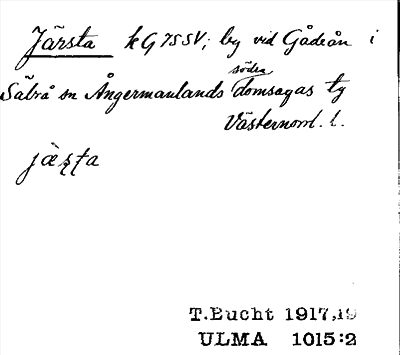 Järsta kG7SSV; by vid Gådeån i
Säbrå sn Ångermanlands södra domsagas tg
Västernorrl. l.
jä̀ʂʈa
T.Bucht 1917,19
ULMA 1015:2